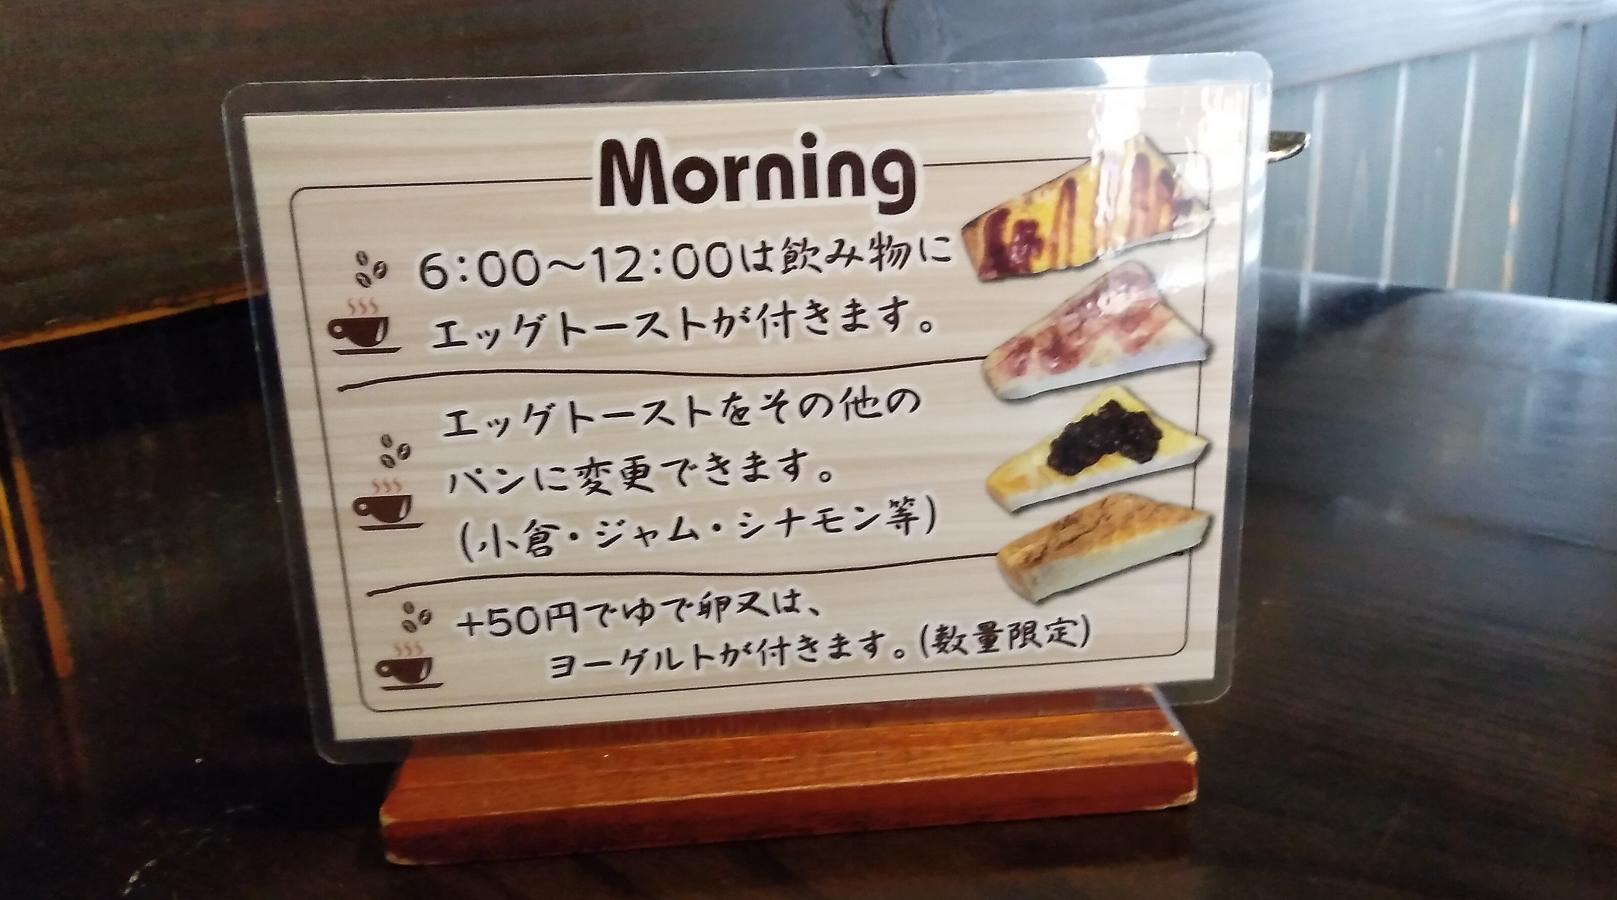 Morning
6:00～12:00は飲み物に
エッグトーストが付きます。
エッグトーストをその他の
パンに変更できます。
(小倉・ジャム・シナモン等)
+50円でゆで卵又は、
ヨーグルトが付きます。(数量限定)